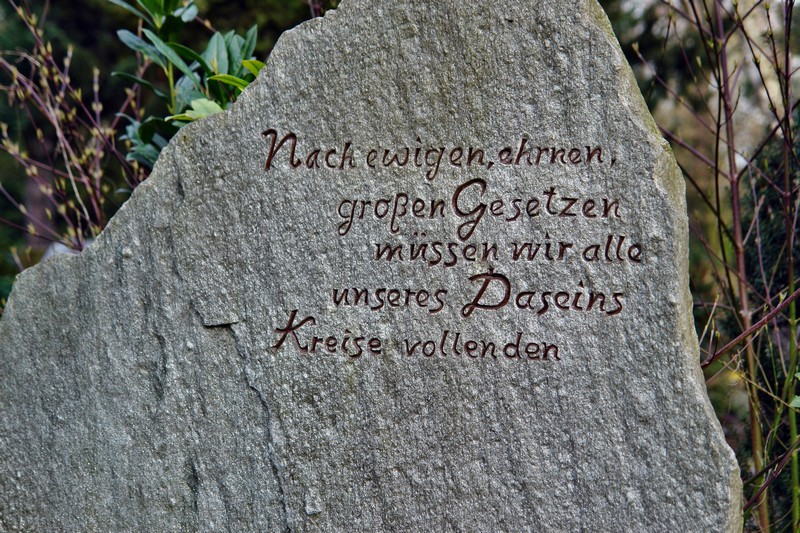 Nach ewigen, ehrnen,
großen Gesetzen
müssen wir alle
unseres Daseins
Kreise vollenden